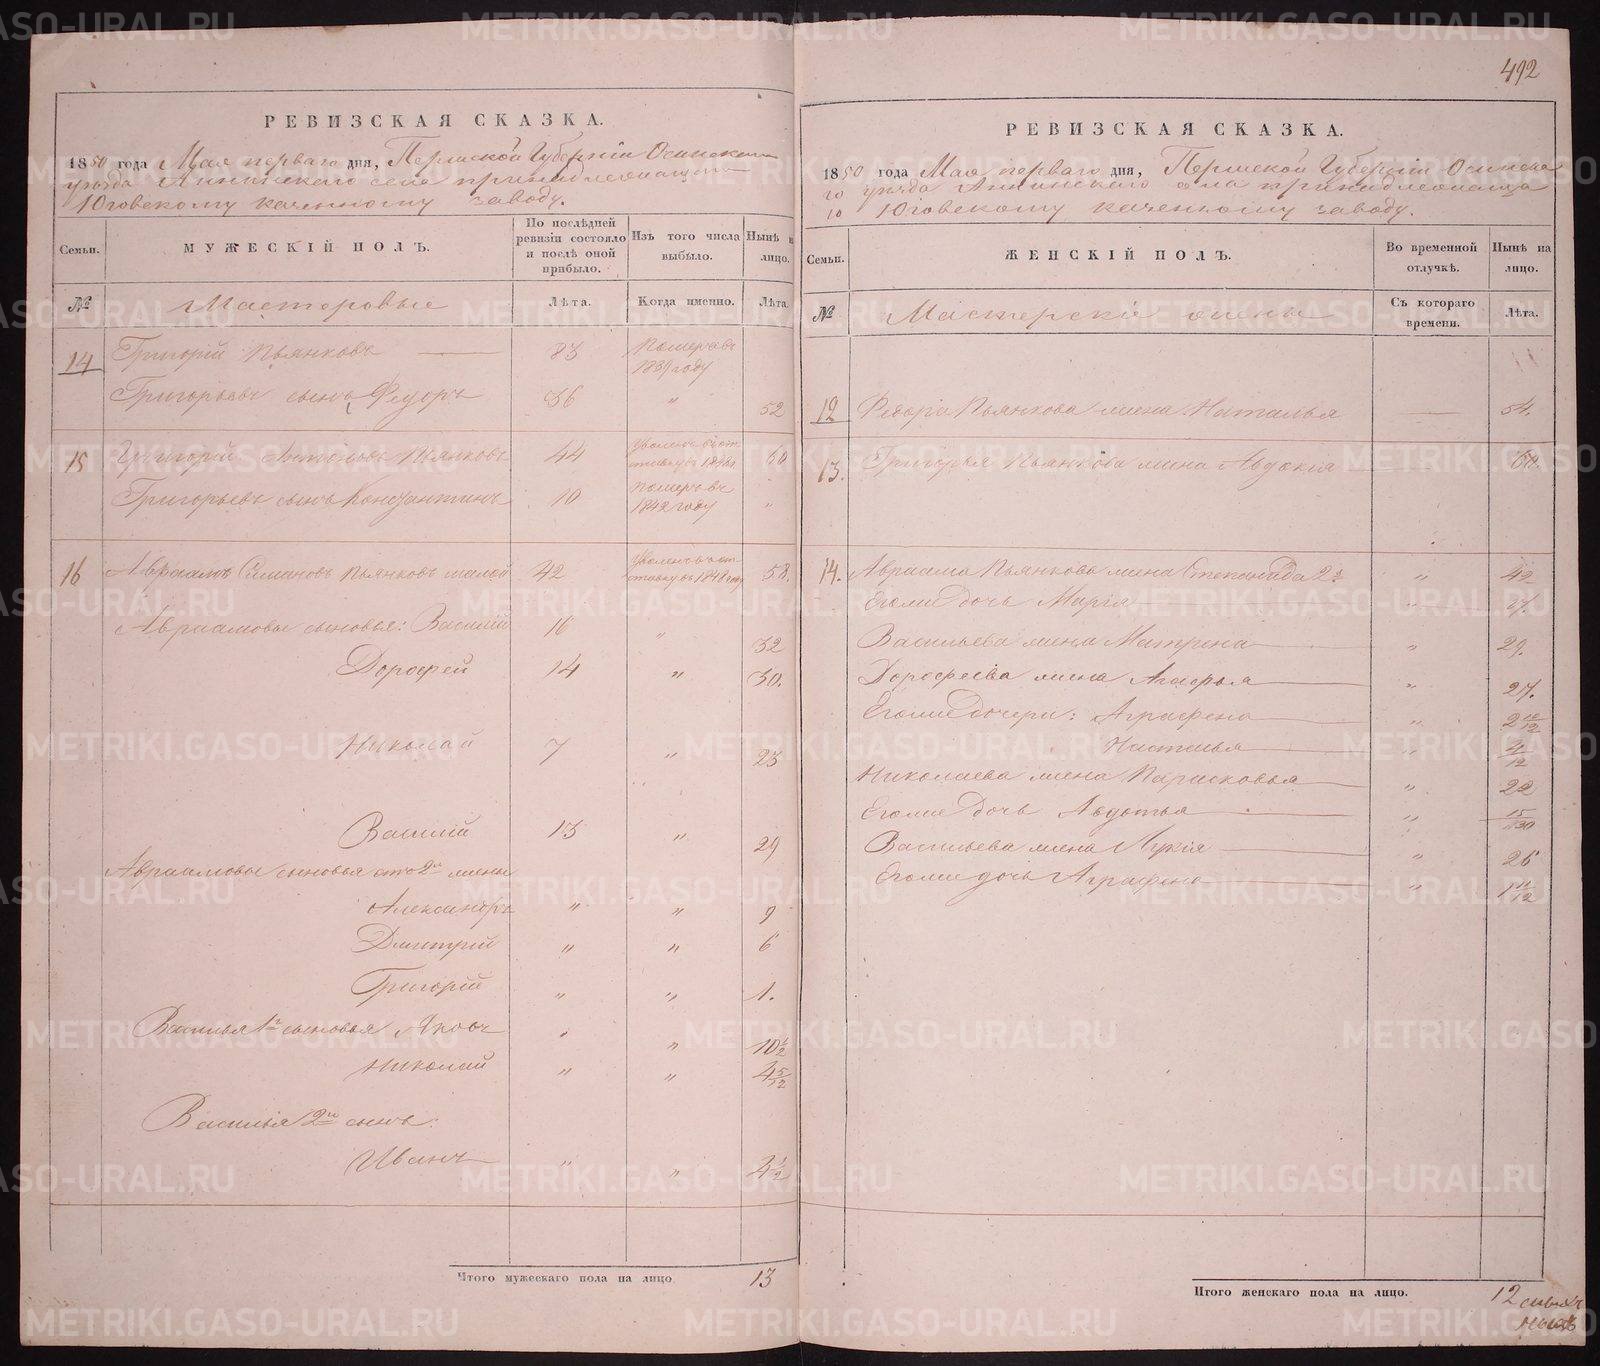 492
РЕВИЗСКАЯ СКАЗКА.
1850 года Мая перваго дня, Пермской Губерніи Осинскаго
уезда Аннинскаго села принадлежащаго
Юговскому казенному заводу.
Семьи.
МУЖЕСКІЙ ПОЛЪ.
По последней ревизіи состояло и после оной прибыло.
Изъ того числа выбыло.
Ныне на лицо.
№
Мастеровые
Лѣта.
Когда именно.
Лѣта.
14 Григорій Пьянковъ 83 Померъ въ
18 году
Григорьевъ сынъ Федоръ 36 " 52
15 Григорій Антоновъ Пьянковъ 44 Уволенъ въ от
ставку въ 184 60
Григорьевъ сынъ Константинъ 10 померъ въ
1842 году "
16 Авраамъ Симановъ Пьянковъ малой 42 Уволенъ въ от
ставку въ 1848 году 58.
Авраамовы сыновья: Василій 16 " 32
Дорофей 14 " 30.
Николай 7 " 23
Василій 13 " 29
Авраамовы сыновья отъ 2й жены
Александръ " " 9
Дмитрій " " 6
Григорій " " 1.
Василья 1го сыновья Яковъ " " 10 1/2
Николай " " 4 5/12
Василья 2го сынъ:
Иванъ " " 4 1/2
Итого мужескаго пола на лицо. 13
РЕВИЗСКАЯ СКАЗКА.
1850 года Мая перваго дня, Пермской Губерніи Осинска
го уезда Аннинскаго села принадлежаща
го Юговскому казенному заводу.
Семьи.
ЖЕНСКІЙ ПОЛЪ.
Во временной отлучкѣ.
Нынѣ на лицо.
№
Мастерскія жены
Съ котораго времени.
Лѣта.
12 Федора Пьянкова жена Наталья 54.
13. Григорья Пьянкова жена Авдокія
14. Авраама Пьянкова жена Степанида 2я " 42
Егоже дочь Марія " 17.
Васильева жена Матрена " 29.
Дорофеева жена Агафья " 27.
Егоже дочери: Аграфена " 2 10/12
Настасья " 4/12
Николаева жена Парасковья " 22
Егоже дочь Авдотья " 15/30
Васильева жена Лукія " 26
Егоже дочь Аграфена " 1 11/12
Итого женскаго пола на лицо. 12
METRIKI.GASO-URAL.RU